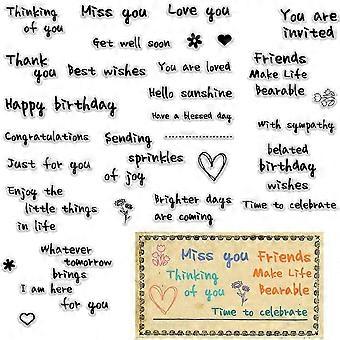 Thinking
of you
Miss you
Love you
You are
invited
Get well soon
Thank
you
Best wishes
You are loved
Friends
Make Life
bearable
Hello sunshine
Happy birthday
Have a blessed day
with sympathy
Congratulations
Sending
sprinkles
of joy
belated
birthday
wishes
Just for you
Enjoy the
little things
in life
Brighter days
are coming
Time to celebrate
whatever
tomorrow
brings
I am here
for you
Miss you
Friends
Make Life
Bearable
Thinking
of you
Time to celebrate